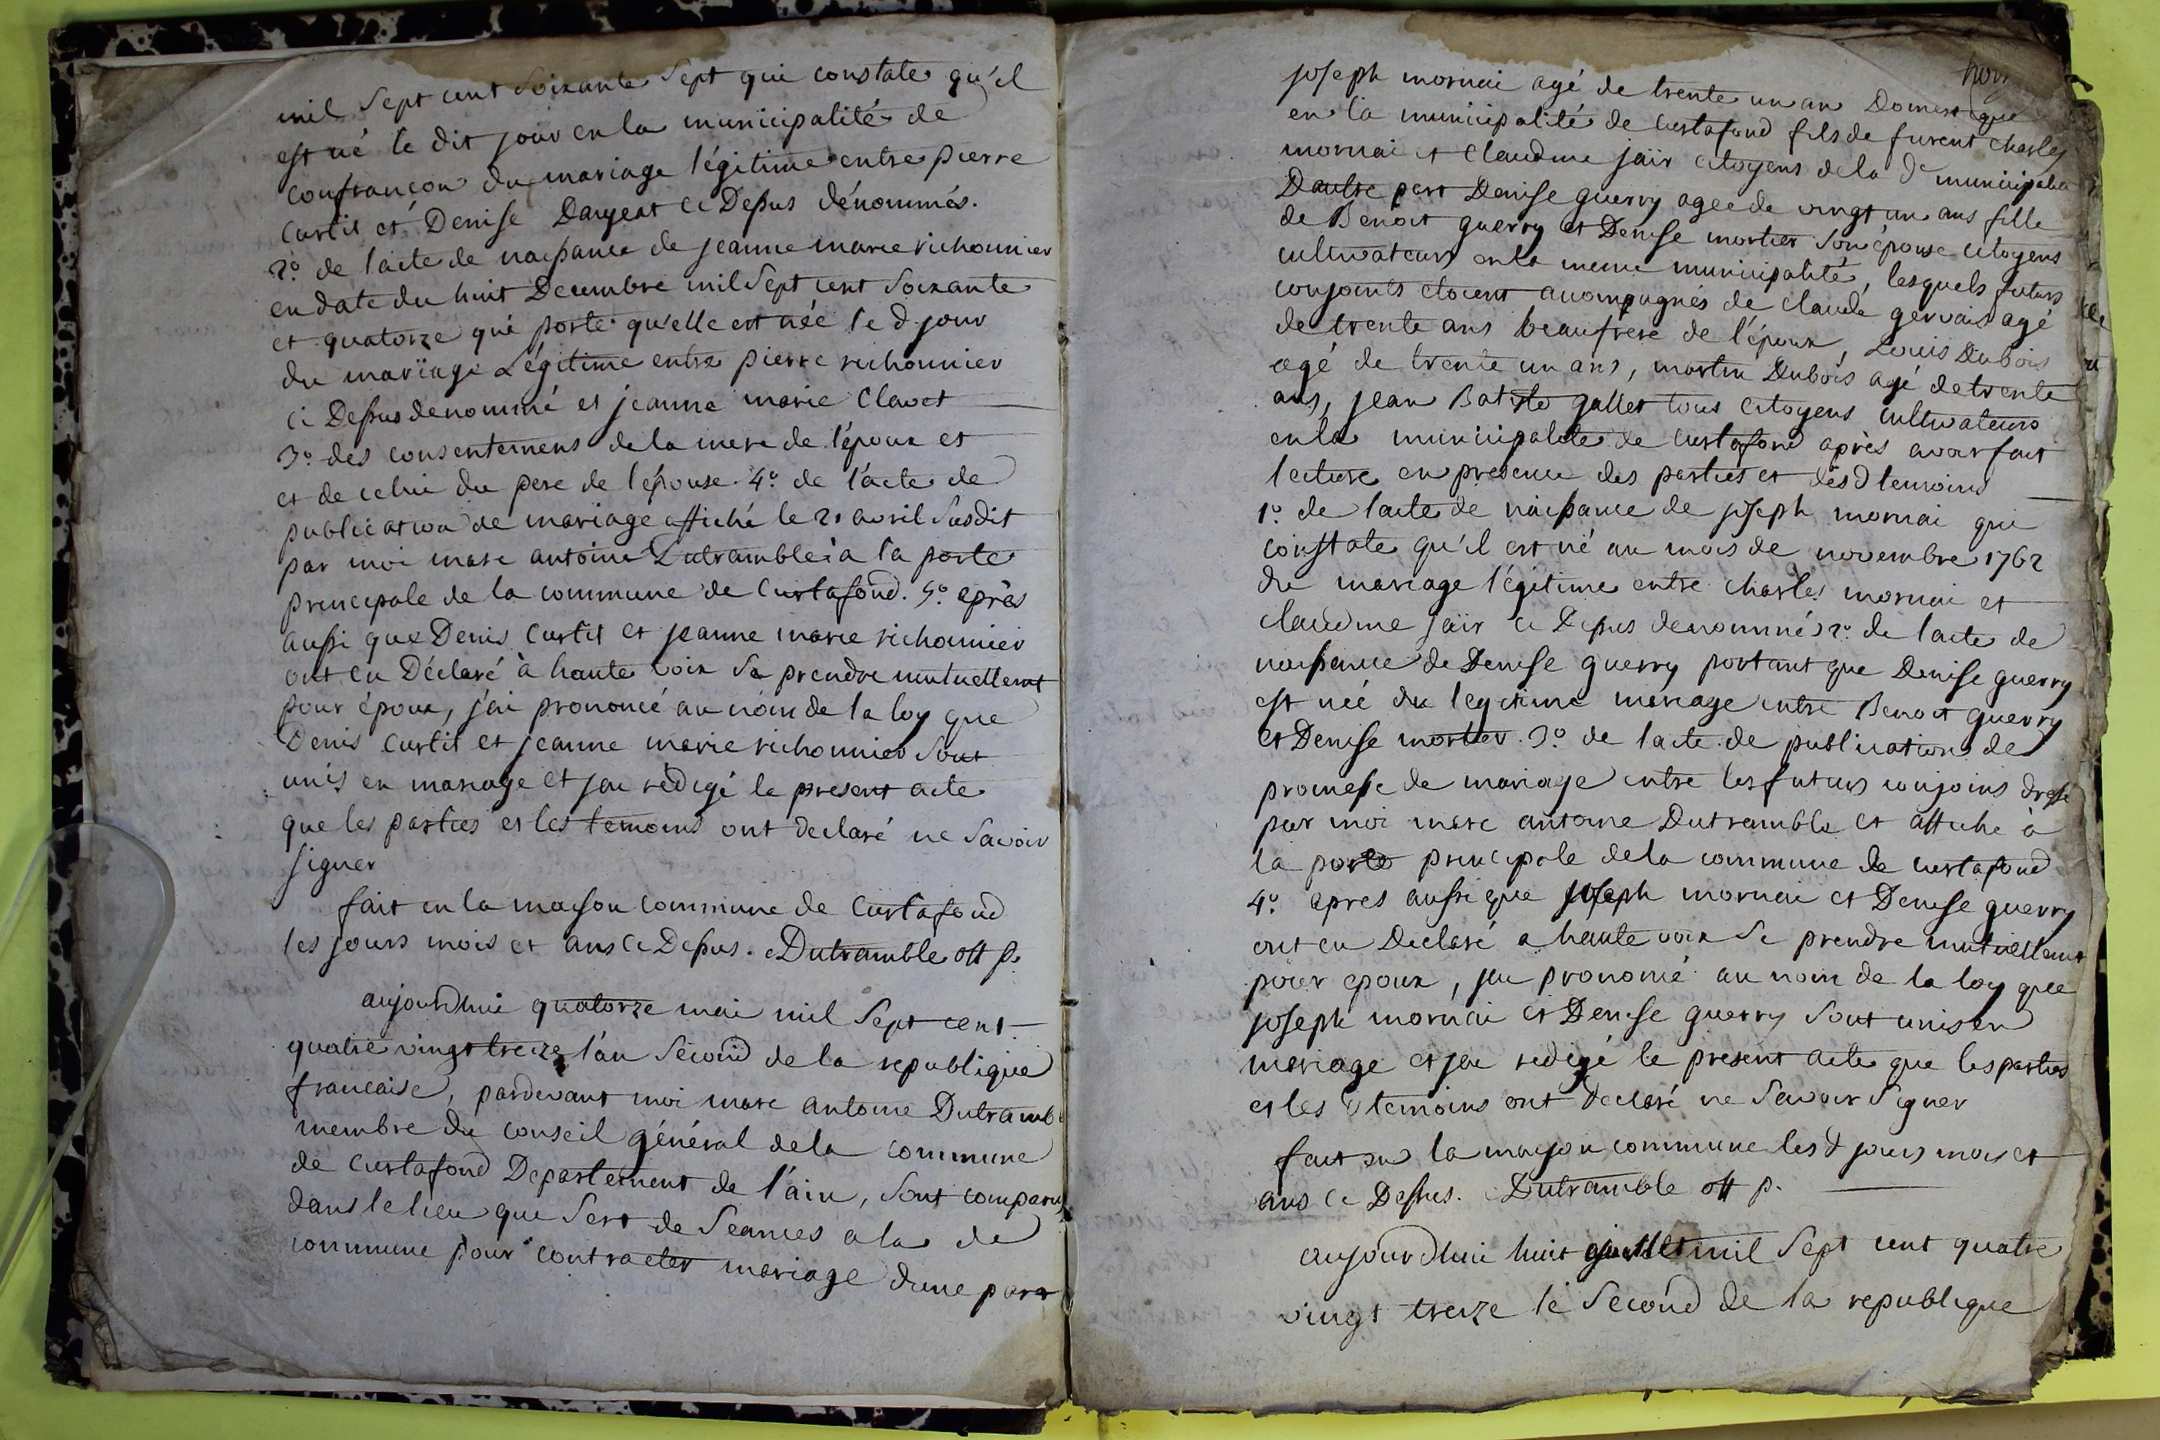 mil Sept cent Soixante Sept qui constate qu'il
est né le dit jour en la municipalité de
confrançon du mariage légitime entre pierre
Curtil et Denise Dangeat ci Dessus dénommés.
2º de l'acte de naissance de jeanne marie richonnier
en date du huit Decembre mil Sept cent Soixante
et quatorze qui porte qu'elle est née le d jour
du mariage Légitime entre pierre richonnier
ci Dessus denommé et jeanne marie Clavet
3º des consentemens de la mere de l'époux et
et de celui du pere de l'épouse. 4º de l'acte de
publication de mariage affiché le 21 avril Susdit
par moi marc antoine Dutramble à la porte
principale de la commune de Curtafond. 5º après
aussi que Denis Curtil et jeanne marie richonnier
ont eu Déclaré à haute voix Se prendre mutuellemt
pour époux, j'ai prononcé au nom de la loy que
Denis Curtil et jeanne marie richonnier Sont
unis en mariage et jai rédigé le present acte
que les parties et les temoins ont declaré ne Savoir
signer
fait en la maison commune de Curtafond
les jours mois et ans ci Dessus. Dutramble off p.
aujourdhui quatorze mai mil Sept cent
quatre vingt treize l'an Second de la republique
francaise, pardevant moi marc antoine Dutramb
membre du conseil général de la commune
de Curtafond Departement de l'ain, Sont comparus
dans le lieu que Sert de Seances a la de
commune pour contracter mariage dune part
joseph mornai agé de trente un an Domestique
en la municipalité de Curtafond fils de furent charles
mornai et Claudine jair citoyens de la de municipalité
Dautre part Denise guerry agee de vingt un ans fille
de Benoit guerry et Denise mortier son épouse citoyens
cultivateurs en la meme municipalité, lesquels futurs
conjoints etoient accompagnés de claude gervais agé
de trente ans beaufrere de l'époux, Louis Dubois
agé de trente un ans, martin Dubois agé de trente
ans, jean Batiste gallet tous citoyens cultivateurs
en la municipalité de Curtafond après avoir fait
lecture en presence des parties et des d temoins
1º de lacte de naissance de joseph mornai qui
constate qu'il est né au mois de novembre 1762
du mariage légitime entre charles mornai et
claudine jair ci Dessus denommés 2º de l'acte de
naissance de Denise guerry portant que Denise guerry
est née du legitime mariage entre Benoit guerry
et Denise mortier. 3º de l'acte de publication de
promesse de mariage entre les futurs conjoins dressé
par moi marc antoine Dutramble et affiché à
la porte principale de la commune de curtafond
4º apres aussi que joseph mornai et Denise guerry
ont eu Declaré a haute voix Se prendre mutuellemt
pour epoux, jai prononcé au nom de la loy que
joseph mornai et Denise guerry Sont unis en
mariage et jai redigé le present acte que les parties
et les d temoins ont declaré ne Savoir Signer
fait en la maison commune les d jours mois et
ans ci Dessus. Dutramble off p.
aujourdhui huit juillet mil Sept cent quatre
vingt treize le Second de la republique